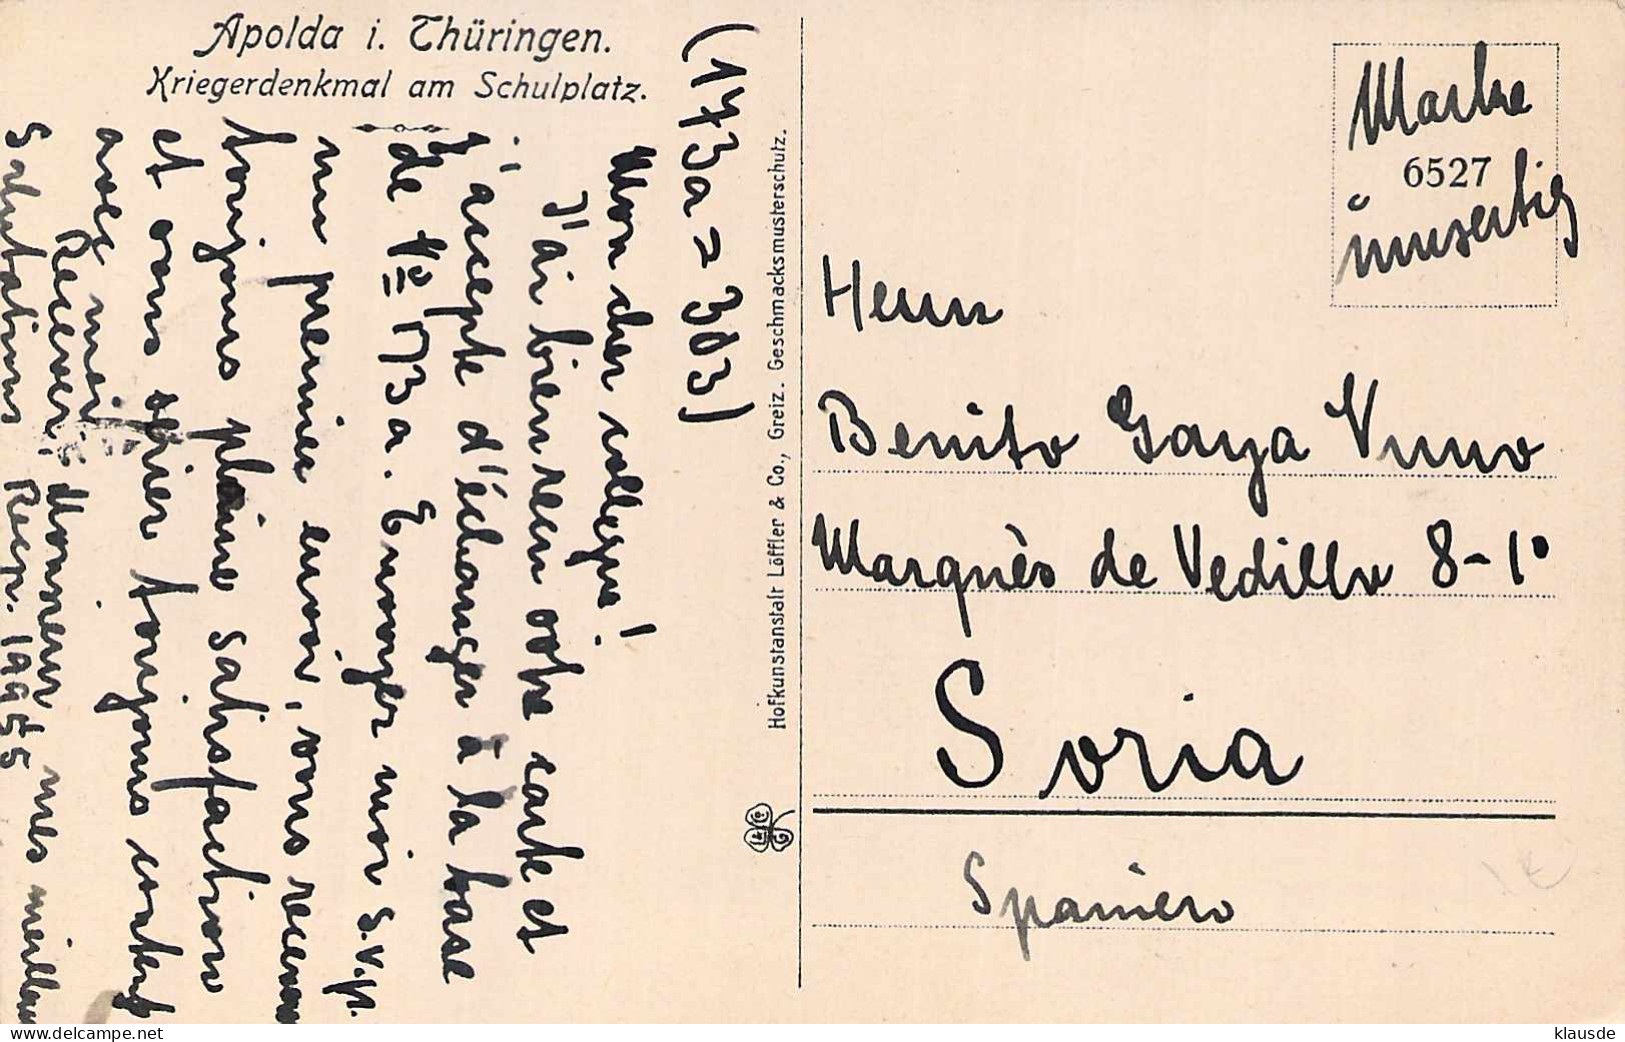 Apolda i. Thüringen.
Kriegerdenkmal am Schulplatz.
(173a = 303)
Mon cher collègue!
J'ai bien reçu votre carte et
j'accepte d'échanger à la base
de No 173a. Envoyer moi s.v.p.
un premier envoi, vous recevrez
toujours pleine satisfaction
et vous serier toujours content
avec moi.
Recever donneur mes meilleures
Salutations Recp. 19955
Hofkunstanstalt Löffler & Co., Greiz. Geschmacksmusterschutz.
Marke
6527
Herrn
Benito Gaya Nuno
Marquès de Vedillo 8-1°
Soria
Spanien
www.delcampe.net
klausde